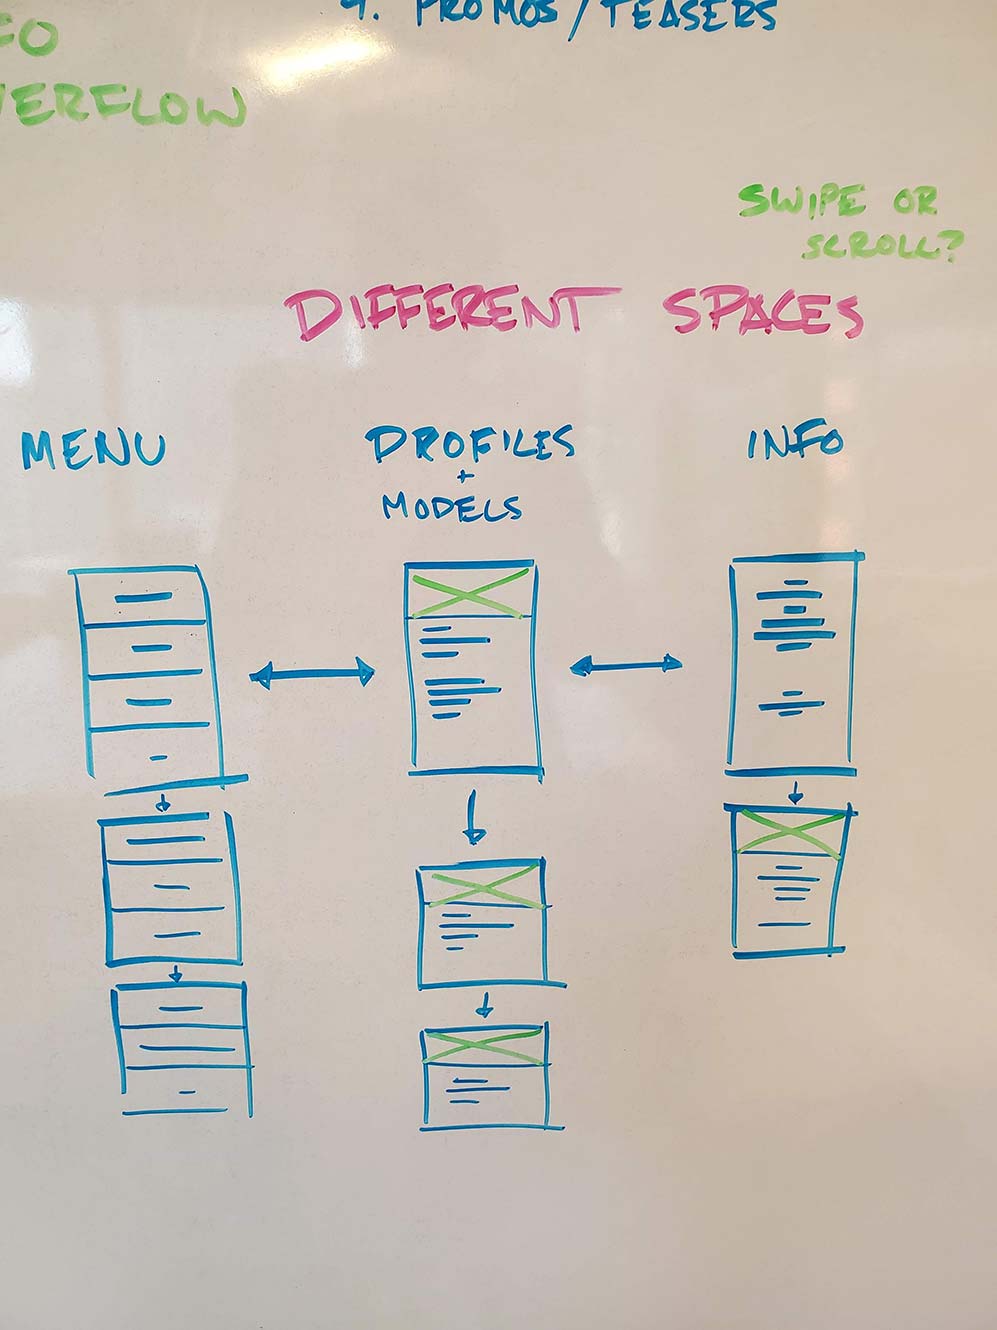 9. PROMOS/TEASERS
FO
VERFLOW
SWIPE OR
SCROLL?
DIFFERENT SPACES
MENU
PROFILES
+
MODELS
INFO